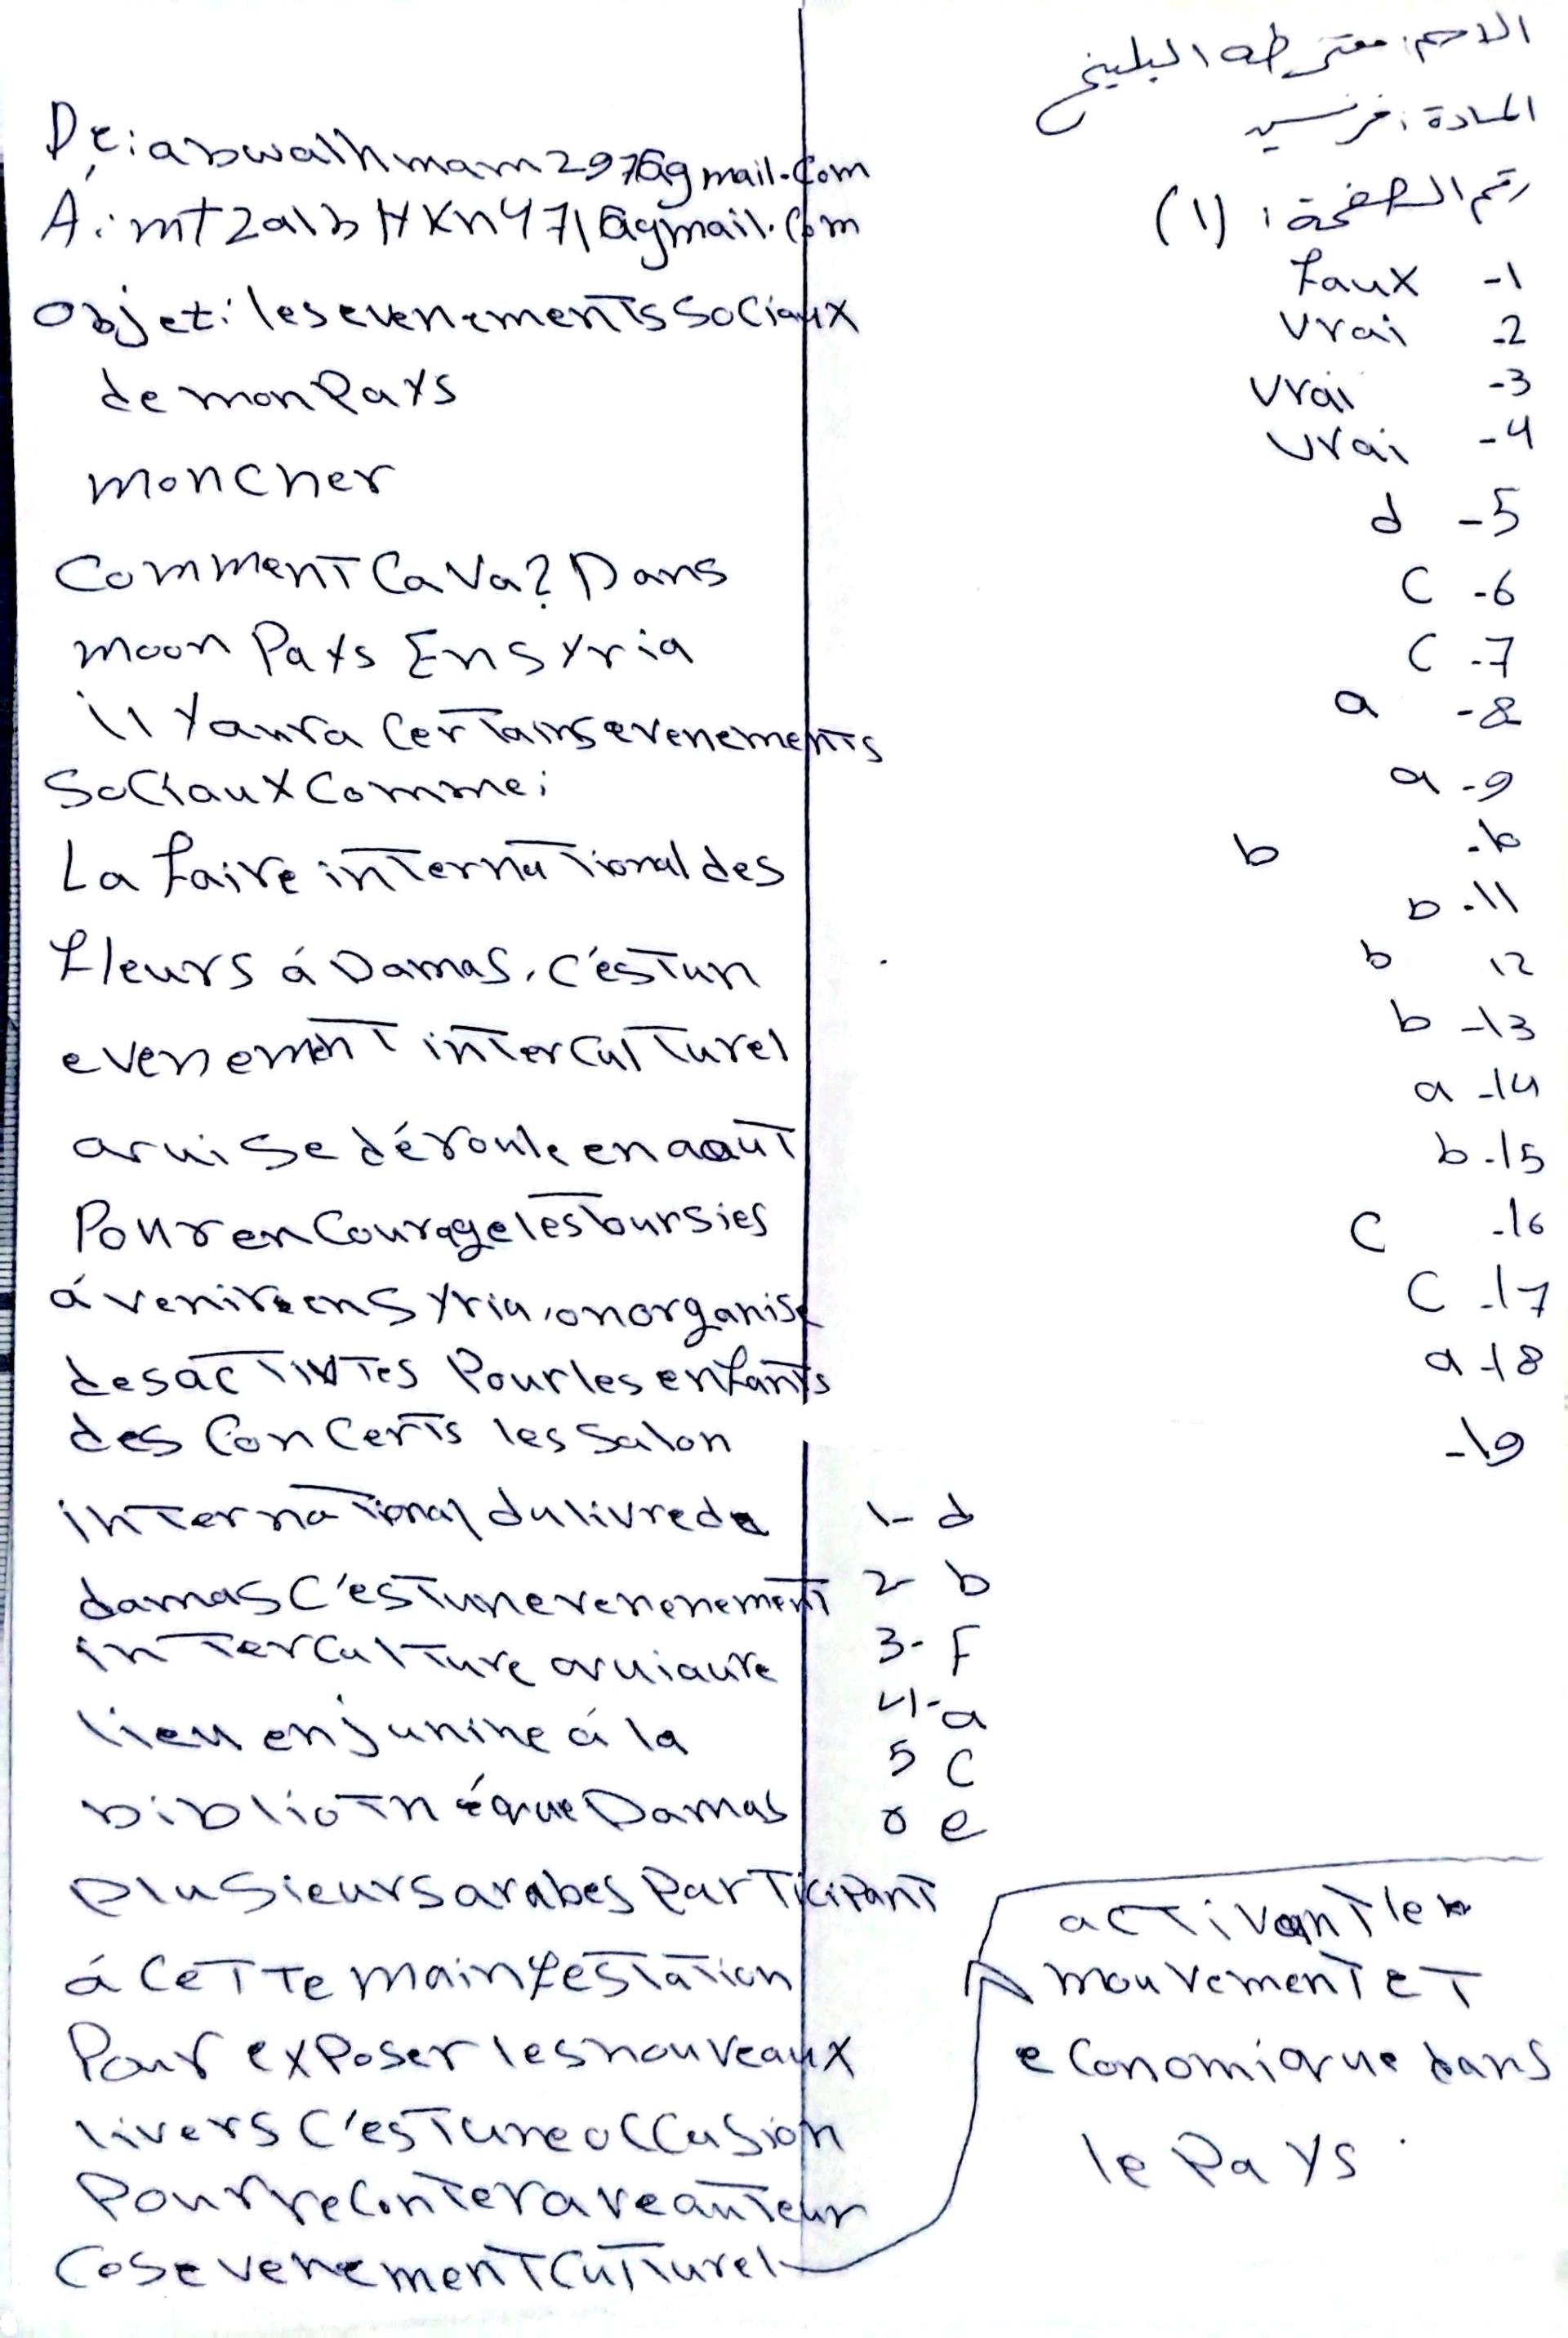 الاسم: معتز طه البليخ
المادة: فرنسي
رقم الصفحة: (1)
faux -1
vrai -2
vrai -3
vrai -4
d -5
c -6
c -7
a -8
a -9
b -10
b -11
b 12
b -13
a -14
b -15
c -16
c -17
a -18
-19
1- d
2- b
3- F
4- a
5 c
6 e
De: abwalhmam297@gmail.com
Á: mtzalbHKn471@gmail.com
objet: les evenements sociaux
de mon Pays
mon cher
comment Ca Va? Dans
moon Pays En Syria
il Y aura certains evenements
sociaux comme:
La faire international des
fleurs á Damas, c'est un
evenement interculturel
qui se déroule en aout
Pour encourage les toursies
á venire en Syria, on organise
des activites Pour les enfants
des Concerts les salon
international du livre de
damas C'est un evenenement
interculture qui aure
lieu en junine á la
bibliothéque Damas
plusieurs arabes Participant
á cette mainfestation
Pour exposer les nouveaux
livers C'est une occasion
Pour reconter ave auteur
Cos evenement culturel
activant le
mouvement et
economique dans
le Pays.